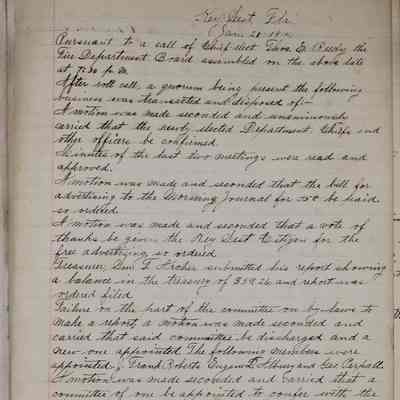 Key West, Fla.
Jan. 20
Pursuant to a call of Chief elect Thos. G. the
Fire Department Board assembled on the above date
at 7:30 p.m.
After roll call, a quorum being present the following
business was transacted and disposed of:-
A motion was made seconded and unanimously
carried that the newly elected Department Chiefs and
other officers be confirmed.
Minutes of the last two meetings were read and
approved.
A motion was made and seconded that the bill for
advertising to the Morning Journal for be paid
so ordered.
A motion was made and seconded that a vote of
thanks be given the Key West Citizen for the
free advertizing, so ordered
Treasurer, Wm. F. Archer submitted his report showing
a balance in the treasury of and report was
ordered filed.
Failure on the part of the committee on by-laws to
make a report, a motion was made seconded and
carried that said committee be discharged and a
new one appointed. The following members were
appointed; Frank Roberts, Eugene L. Albury and Geo. Perpall.
A motion was made seconded and carried that a
committee of one be appointed to confer with the